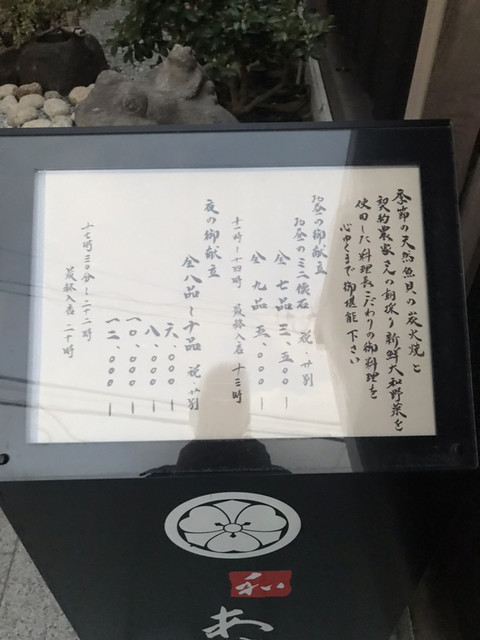 季節の天然魚貝の炭火焼と
契約農家さんの朝採り新鮮大和野菜を
使用した料理長こだわりの御料理を
心ゆくまで御堪能下さい
お昼の御献立
お昼のミニ懐石 税・サ別
全七品 三、五〇〇ー
全九品 五、〇〇〇ー
十一時〜十四時 最終入店 十三時
夜の御献立
全八品〜十品 税・サ別
六、〇〇〇ー
八、〇〇〇ー
一〇、〇〇〇ー
一二、〇〇〇ー
十七時三〇分〜二十二時
最終入店 二十時
和